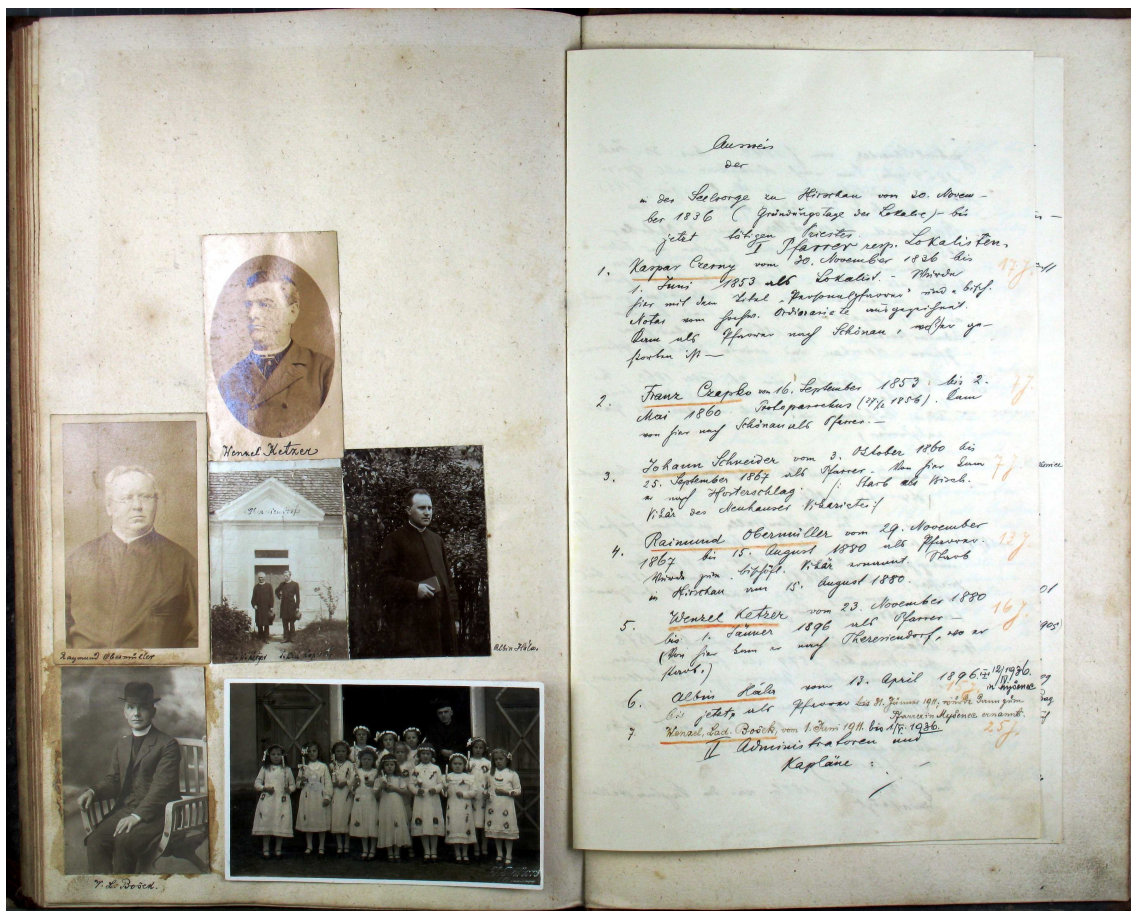 Wenzel Ketzer
Raymund Obermüller
Albin Hále
V. L. Bošek.
Ausweis
der
in der Seelsorge zu Hirschau vom 20. Novem-
ber 1836 (Gründungstage der Lokalie) bis
jetzt tätigen Priester.
I Pfarrer resp. Lokalisten.
1. Kaspar Czerny vom 20. November 1836 bis 17 J.
1. Juni 1853 als Lokalist. – Wurde
hier mit dem Titel „Personalpfarrer" und bisch.
Notar vom hochw. Ordinariate ausgezeichnet.
Kam als Pfarrer nach Schönau, wo er ge-
storben ist –
2. Franz Czapko vom 16. September 1853 bis 2. 7 J.
Mai 1860 1856). Kam
von hier nach Schönau als Pfarrer. –
3. Johann Schneider vom 3. Oktober 1860 bis
25. September 1867 als Pfarrer. Von hier kam 7 J.
er nach Hosterschlag. /: Starb als Bisch.
Vikär des Neuhauser Vikariats :/
4. Raimund Obermüller vom 29. November
1867 bis 15. August 1880 als Pfarrer. 13 J.
Wurde zum bischöfl. Vikär ernannt. Starb
in Hirschau am 15. August 1880.
5. Wenzel Ketzer vom 23. November 1880 16 J.
bis 1. Jänner 1896 als Pfarrer –
(Von hier kam er nach Theresiendorf, wo er
starb.)
6. Albin Hále vom 13. April 1896
bis jetzt als Pfarrer bis 31. Jänner 1911, wurde dann zum
Pfarrer in Myšenec ernannt.
7 Wenzel Lad. Bošek, vom 1. Juni 1911 bis 1936. 25 J.
II Administratoren und
Kapläne :